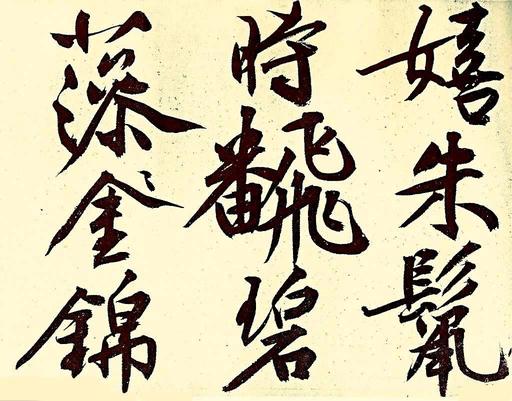 嬉朱鬣
時飜碧
藻金錦